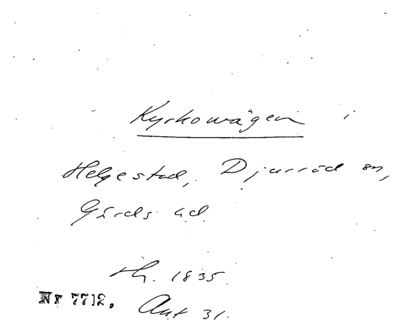 Kyrkowägen i
Helgestad, Djurröd sn,
Gärds hd.
th. 1835.
Nr 7712. Ant 31.